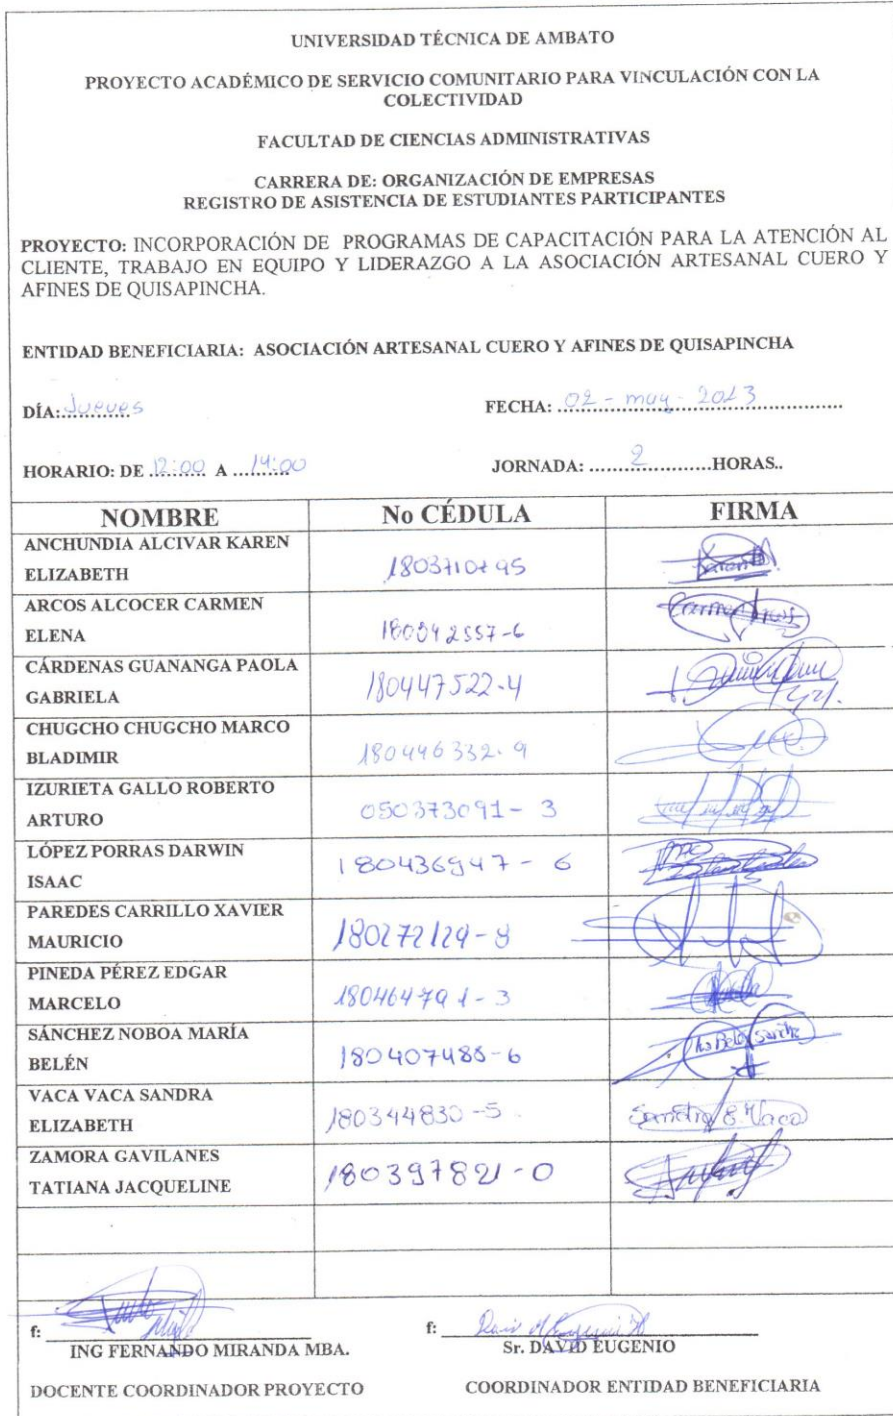 UNIVERSIDAD TÉCNICA DE AMBATO
PROYECTO ACADÉMICO DE SERVICIO COMUNITARIO PARA VINCULACIÓN CON LA
COLECTIVIDAD
FACULTAD DE CIENCIAS ADMINISTRATIVAS
CARRERA DE: ORGANIZACIÓN DE EMPRESAS
REGISTRO DE ASISTENCIA DE ESTUDIANTES PARTICIPANTES
PROYECTO: INCORPORACIÓN DE PROGRAMAS DE CAPACITACIÓN PARA LA ATENCIÓN AL
CLIENTE, TRABAJO EN EQUIPO Y LIDERAZGO A LA ASOCIACIÓN ARTESANAL CUERO Y
AFINES DE QUISAPINCHA.
ENTIDAD BENEFICIARIA: ASOCIACIÓN ARTESANAL CUERO Y AFINES DE QUISAPINCHA
DÍA: Jueves FECHA: 02 - may - 2013
HORARIO: DE 12:00 A 14:00 JORNADA: 2 HORAS..
NOMBRE No CÉDULA FIRMA
ANCHUNDIA ALCIVAR KAREN
ELIZABETH
ARCOS ALCOCER CARMEN
ELENA Carmen Arcos
CÁRDENAS GUANANGA PAOLA
GABRIELA 180447522-4
CHUGCHO CHUGCHO MARCO
BLADIMIR 180446332-9
IZURIETA GALLO ROBERTO
ARTURO 050373091-3
LÓPEZ PORRAS DARWIN
ISAAC 180436947-6
PAREDES CARRILLO XAVIER
MAURICIO 180272129-8
PINEDA PÉREZ EDGAR
MARCELO 180464791-3
SÁNCHEZ NOBOA MARÍA
BELÉN 180407488-6
VACA VACA SANDRA
ELIZABETH 180344830-5 Sandra E. Vaca
ZAMORA GAVILANES
TATIANA JACQUELINE 180397821-0
f: f:
ING FERNANDO MIRANDA MBA. Sr. DAVID EUGENIO
DOCENTE COORDINADOR PROYECTO COORDINADOR ENTIDAD BENEFICIARIA